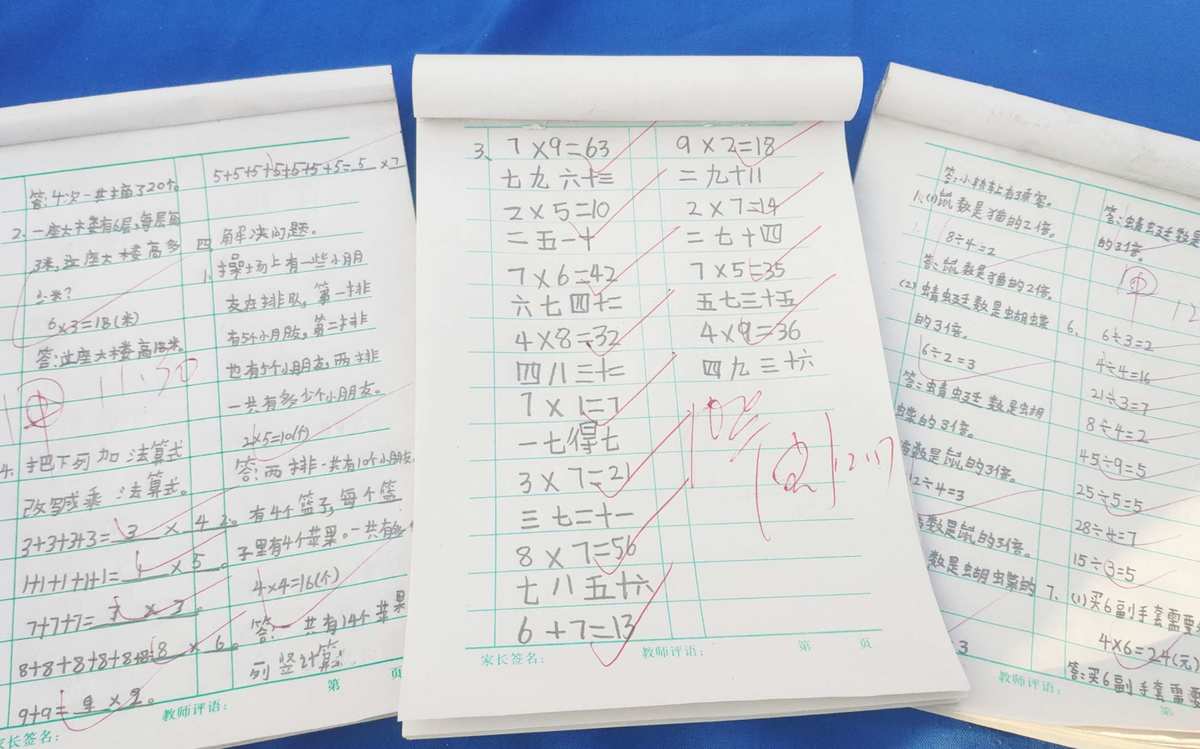 答:4次一共摘了20个。
2.一座大楼有6层,每层高
3米,这座大楼高多
少米?
6×3=18(米)
答:这座大楼高18米。
11:30
4.把下列加法算式
改写成乘法算式。
3+3+3+3=3×4
1+1+1+1+1=1×5。
7+7+7=7×3。
8+8+8+8+8+8=8×6。
9+9=9×2。
家长签名:
5+5+5+5+5+5+5=5×7
四解决问题。
1.操场上有一些小朋
友在排队,第一排
有5个小朋友,第二排
也有5个小朋友,两排
一共有多少个小朋友。
2×5=10(个)
答:两排一共有10个小朋友
2.有4个篮子,每个篮
子里有4个苹果。一共有
4×4=16(个)
答:一共有14个苹果
列竖计算
教师评语:
第 页
3.
7×9=63
七九六十三
2×5=10
二五一十
7×6=42
六七四十二
4×8=32
四八三十二
7×1=7
一七得七
3×7=21
三七二十一
8×7=56
七八五十六
6+7=13
9×2=18
二九十八
2×7=14
二七十四
7×5=35
五七三十五
4×9=36
四九三十六
家长签名:
教师评语:
第 页
1.(1)鼠数是猫的2倍。
8÷4=2
答:鼠数是猫的2倍。
(2)蜻虫廷数是蝴蝶
的3倍。
6÷2=3
答:蜻虫廷数是蝴
蝶的3倍。
数是鼠的3倍。
12÷4=3
数是鼠的3倍。
数是蝴蝶的
3
答:蜻虫廷数是
的3倍。
6.
6÷3=2
4÷4=16
21÷3=7
8÷4=2
45÷9=5
25÷5=5
28÷4=7
15÷3=5
7.(1)买6副手套需要
4×6=24(元)
答:买6副手套需要
教师评语:
第